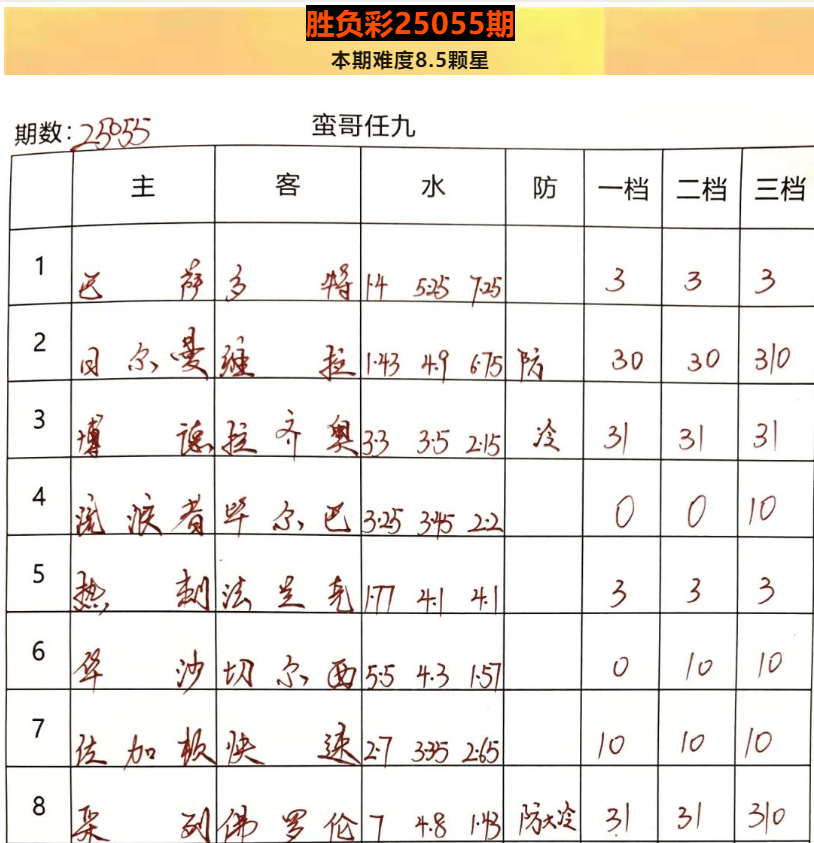 胜负彩25055期
本期难度8.5颗星
期数:25055 蛮哥任九
主 客 水 防 一档 二档 三档
1 巴萨 多特 1.4 5.25 7.25 3 3 3
2 日尔曼 维拉 1.43 4.9 6.75 防 30 30 310
3 博德 拉齐奥 3.3 3.5 2.15 冷 31 31 31
4 流浪者 毕尔巴 3.25 3.45 2.2 0 0 10
5 热刺 法兰克 1.77 4.1 4.1 3 3 3
6 华沙 切尔西 5.5 4.3 1.57 0 10 10
7 佐加顿 快速 2.7 3.35 2.65 10 10 10
8 采列 佛罗伦 7 4.8 1.43 防大冷 31 31 310